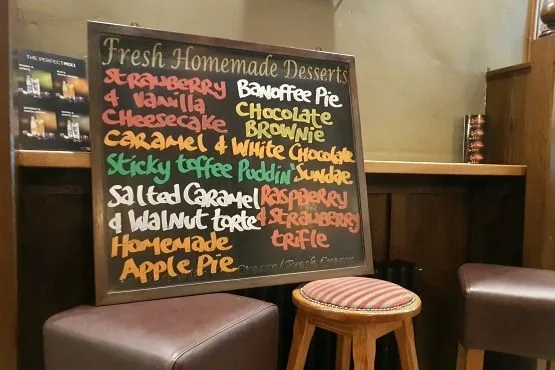 THE PERFECT MIX!
Fresh Homemade Desserts
Strawberry
& Vanilla
Cheesecake
Banoffee Pie
Chocolate
Brownie
Caramel & White Chocolate
Sundae
Sticky toffee Puddin'
Salted Caramel
& Walnut torte
Raspberry
& Strawberry
trifle
Homemade
Apple Pie
Cream/Fresh Cream